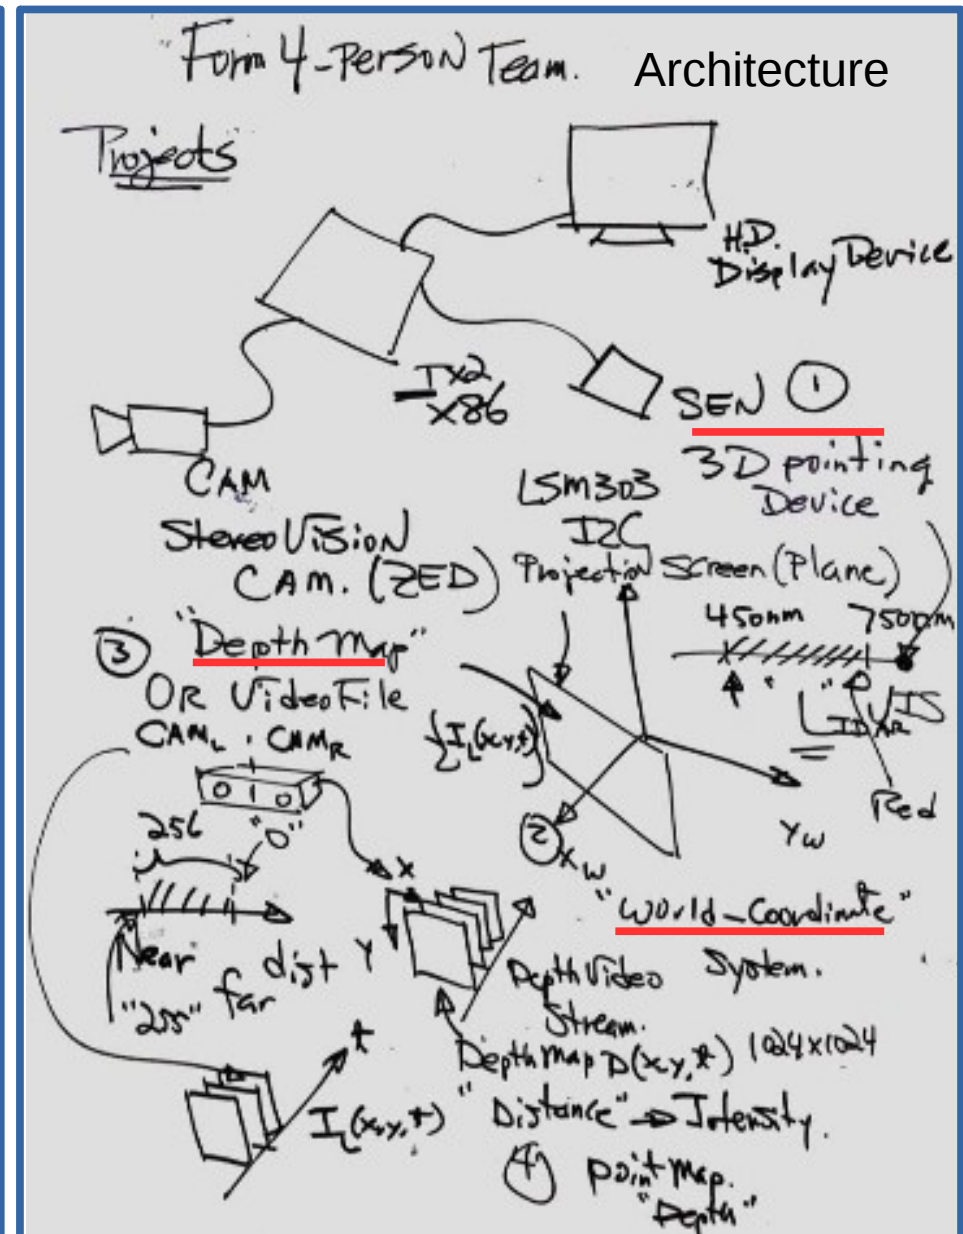 Form 4-Person Team.
Architecture
Projects
H.D.
Display Device
TX2
X86
SEN ①
3D pointing
Device
CAM
Stereo Vision
CAM. (ZED)
LSM303
I2C
Projection Screen (Plane)
450nm 750nm
③ "Depth Map"
OR Video File
CAM_L . CAM_R
{I_L(x,y,t)}
LIDAR
VIS
Red
256
"0"
② X_W
Y_W
"World-Coordinate"
System.
X
Y
Near
far
dist
"255"
Depth Video
Stream.
t
Depth Map D(x,y,t) 1024x1024
I_L(x,y,t)
"Distance" → Intensity.
④ point Map.
"Depth"